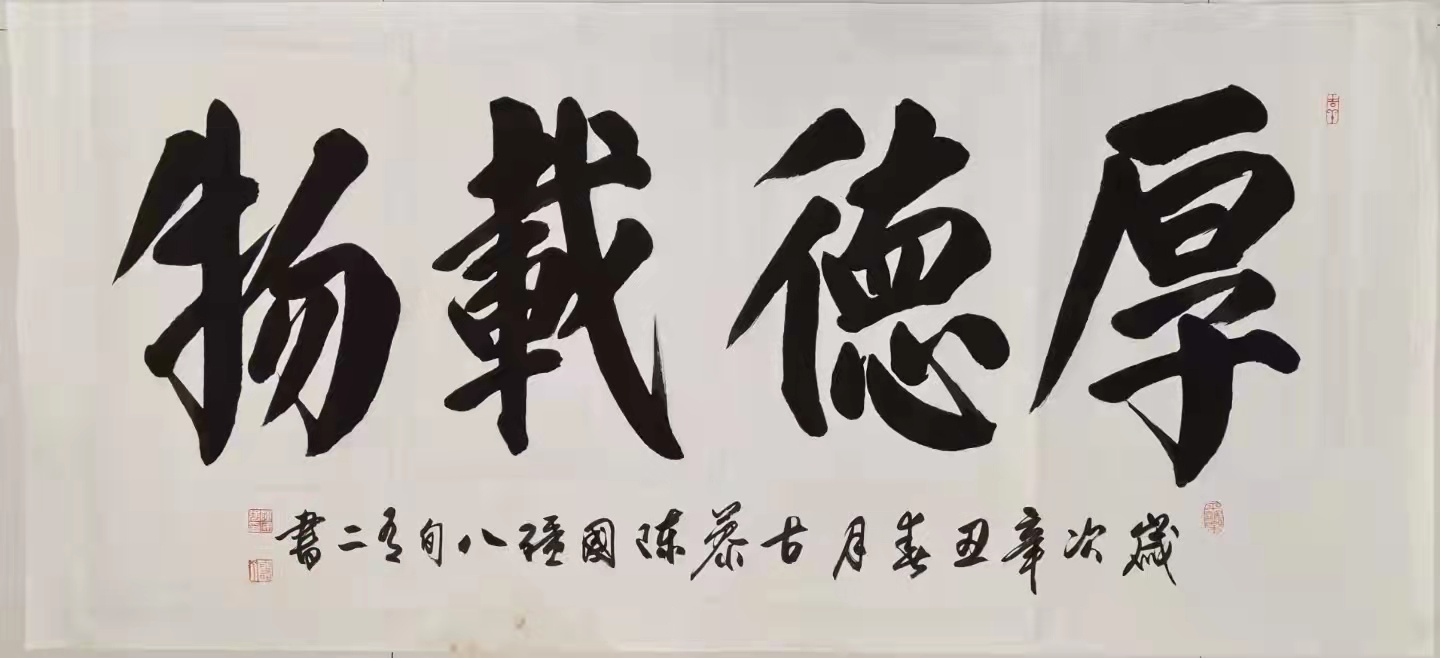 厚德載物
歲次辛丑春月古蔡陳國強八旬有二書